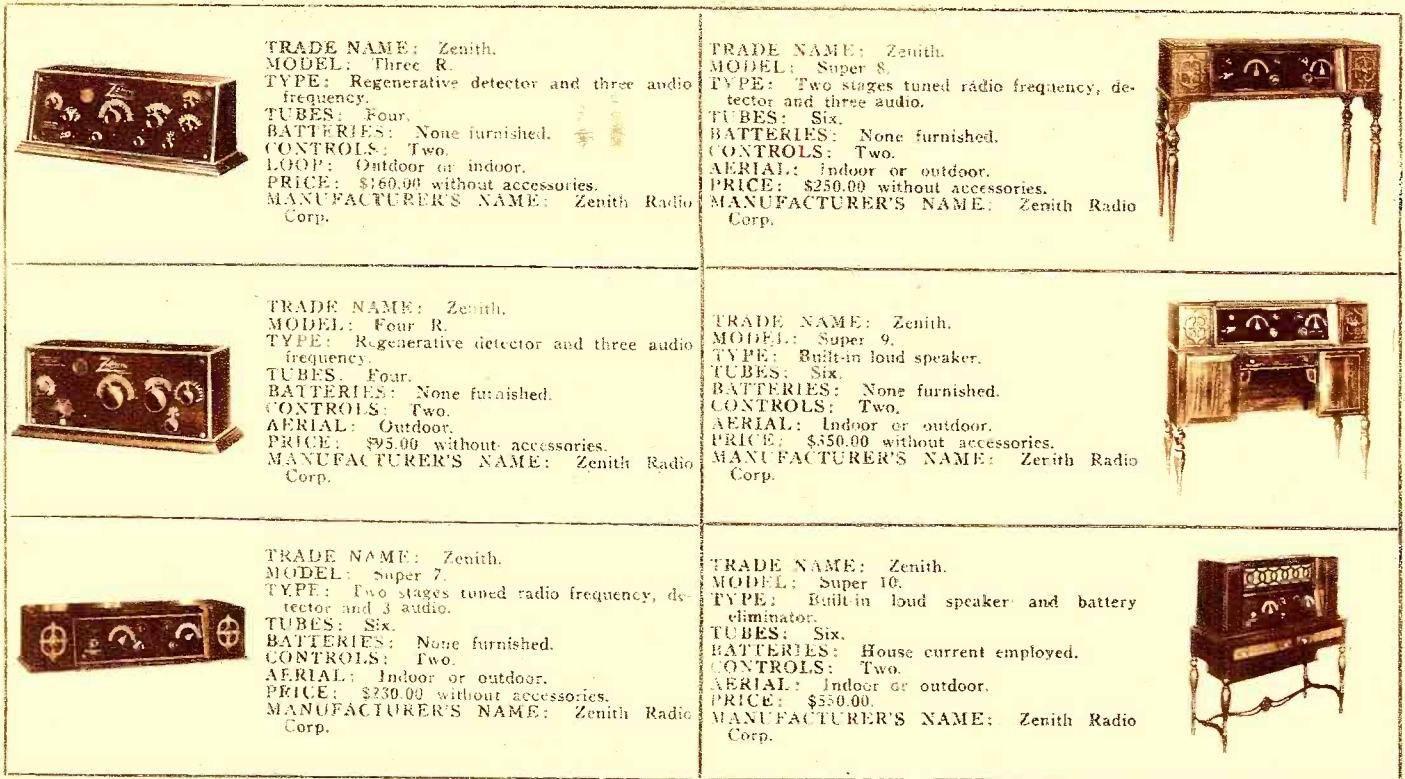 TRADE NAME: Zenith.
MODEL: Three R.
TYPE: Regenerative detector and three audio
frequency.
TUBES: Four.
BATTERIES: None furnished.
CONTROLS: Two.
LOOP: Outdoor or indoor.
PRICE: $160.00 without accessories.
MANUFACTURER'S NAME: Zenith Radio
Corp.
TRADE NAME: Zenith.
MODEL: Four R.
TYPE: Regenerative detector and three audio
frequency.
TUBES. Four.
BATTERIES: None furnished.
CONTROLS: Two.
AERIAL: Outdoor.
PRICE: $95.00 without accessories.
MANUFACTURER'S NAME: Zenith Radio
Corp.
TRADE NAME: Zenith.
MODEL: Super 7.
TYPE: Two stages tuned radio frequency, de-
tector and 3 audio.
TUBES: Six.
BATTERIES: None furnished.
CONTROLS: Two.
AERIAL: Indoor or outdoor.
PRICE: $230.00 without accessories.
MANUFACTURER'S NAME: Zenith Radio
Corp.
TRADE NAME: Zenith.
MODEL: Super 8.
TYPE: Two stages tuned radio frequency, de-
tector and three audio.
TUBES: Six.
BATTERIES: None furnished.
CONTROLS: Two.
AERIAL: Indoor or outdoor.
PRICE: $250.00 without accessories.
MANUFACTURER'S NAME: Zenith Radio
Corp.
TRADE NAME: Zenith.
MODEL: Super 9.
TYPE: Built-in loud speaker.
TUBES: Six.
BATTERIES: None furnished.
CONTROLS: Two.
AERIAL: Indoor or outdoor.
PRICE: $350.00 without accessories.
MANUFACTURER'S NAME: Zenith Radio
Corp.
TRADE NAME: Zenith.
MODEL: Super 10.
TYPE: Built-in loud speaker and battery
eliminator.
TUBES: Six.
BATTERIES: House current employed.
CONTROLS: Two.
AERIAL: Indoor or outdoor.
PRICE: $550.00.
MANUFACTURER'S NAME: Zenith Radio
Corp.